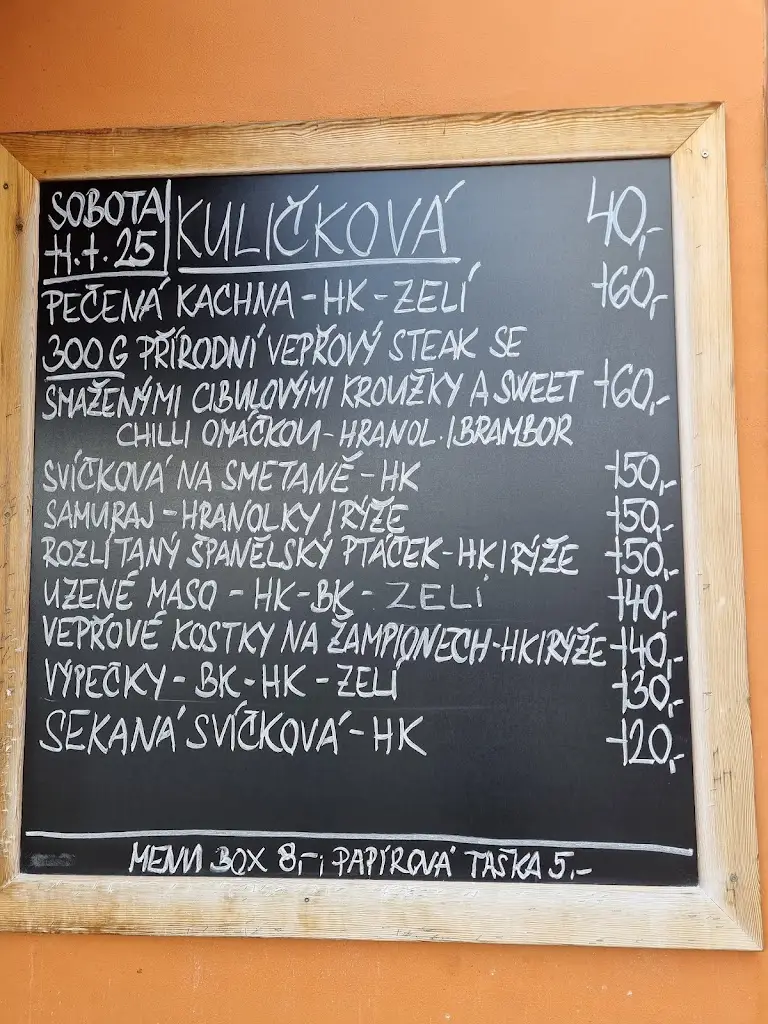 SOBOTA KULIČKOVÁ 40,-
11.1.25
PEČENÁ KACHNA - HK - ZELÍ 160,-
300G PŘÍRODNÍ VEPŘOVÝ STEAK SE
SMAŽENÝMI CIBULOVÝMI KROUŽKY A SWEET 160,-
CHILLI OMÁČKOU - HRANOL. / BRAMBOR
SVÍČKOVÁ NA SMETANĚ - HK 150,-
SAMURAJ - HRANOLKY / RÝŽE 150,-
ROZLÍTANÝ ŠPANĚLSKÝ PTÁČEK - HK / RÝŽE 150,-
UZENÉ MASO - HK - BK - ZELÍ 140,-
VEPŘOVÉ KOSTKY NA ŽAMPIONECH - HK / RÝŽE 140,-
VÝPEČKY - BK - HK - ZELÍ 130,-
SEKANÁ SVÍČKOVÁ - HK 120,-
MENU BOX 8,- ; PAPÍROVÁ TAŠKA 5,-